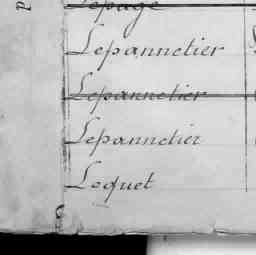 Lepage
Lepannetier
Lepannetier
Lepannetier
Loquet